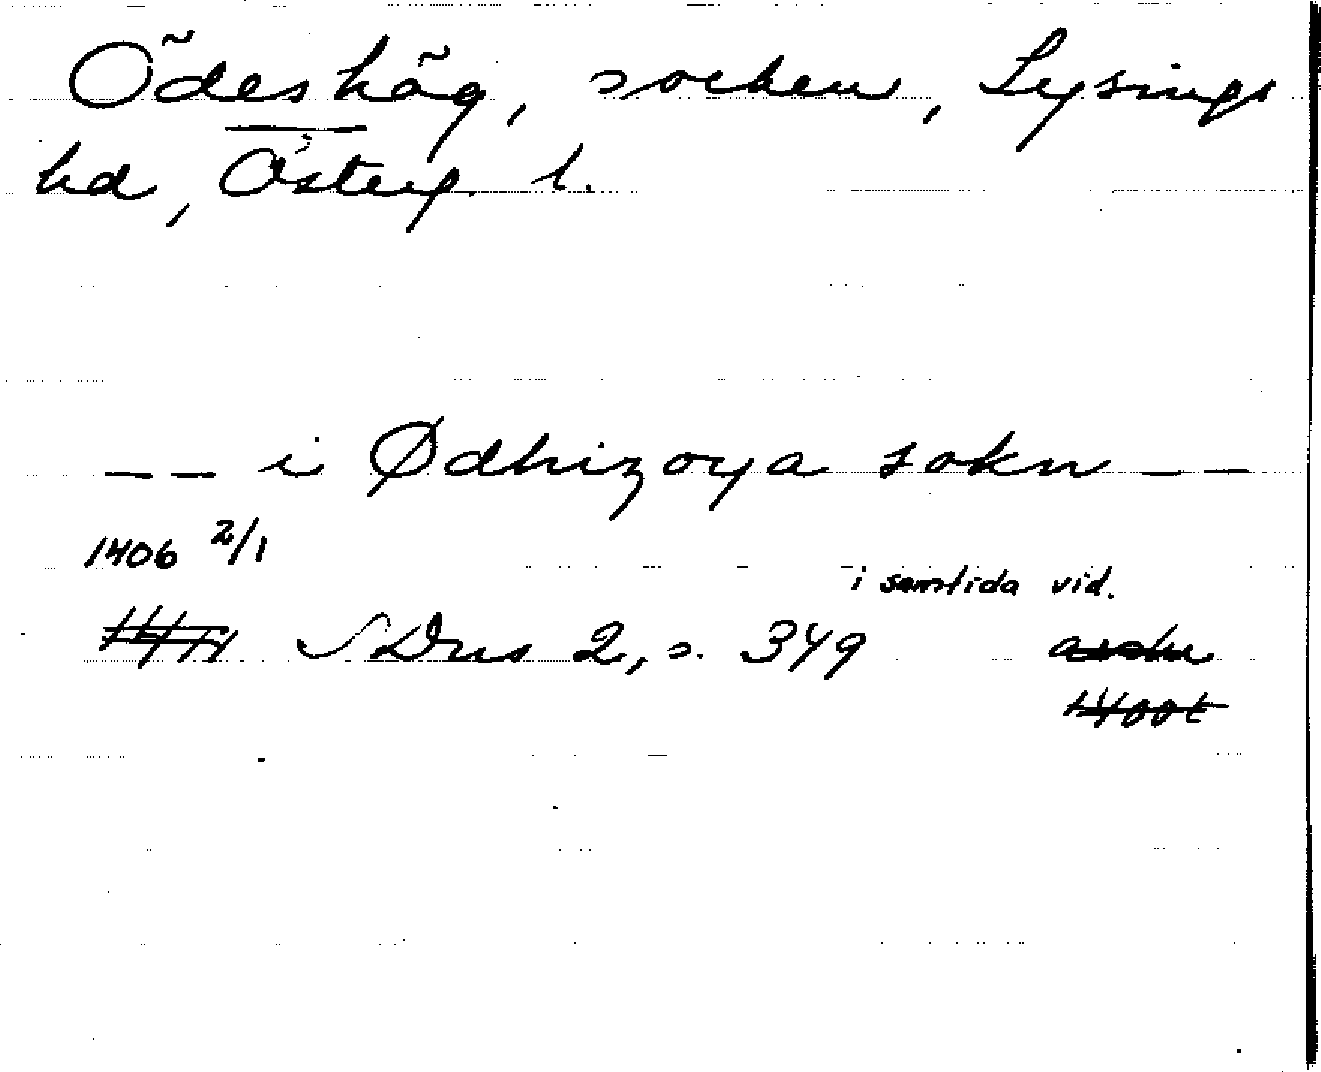 Ödeshög, socken, Lysings
hd, Österg. l.
-- i Ødhizoya sokn --
1406 2/1
i samtida vid.
SDns 2, s. 349
1400t